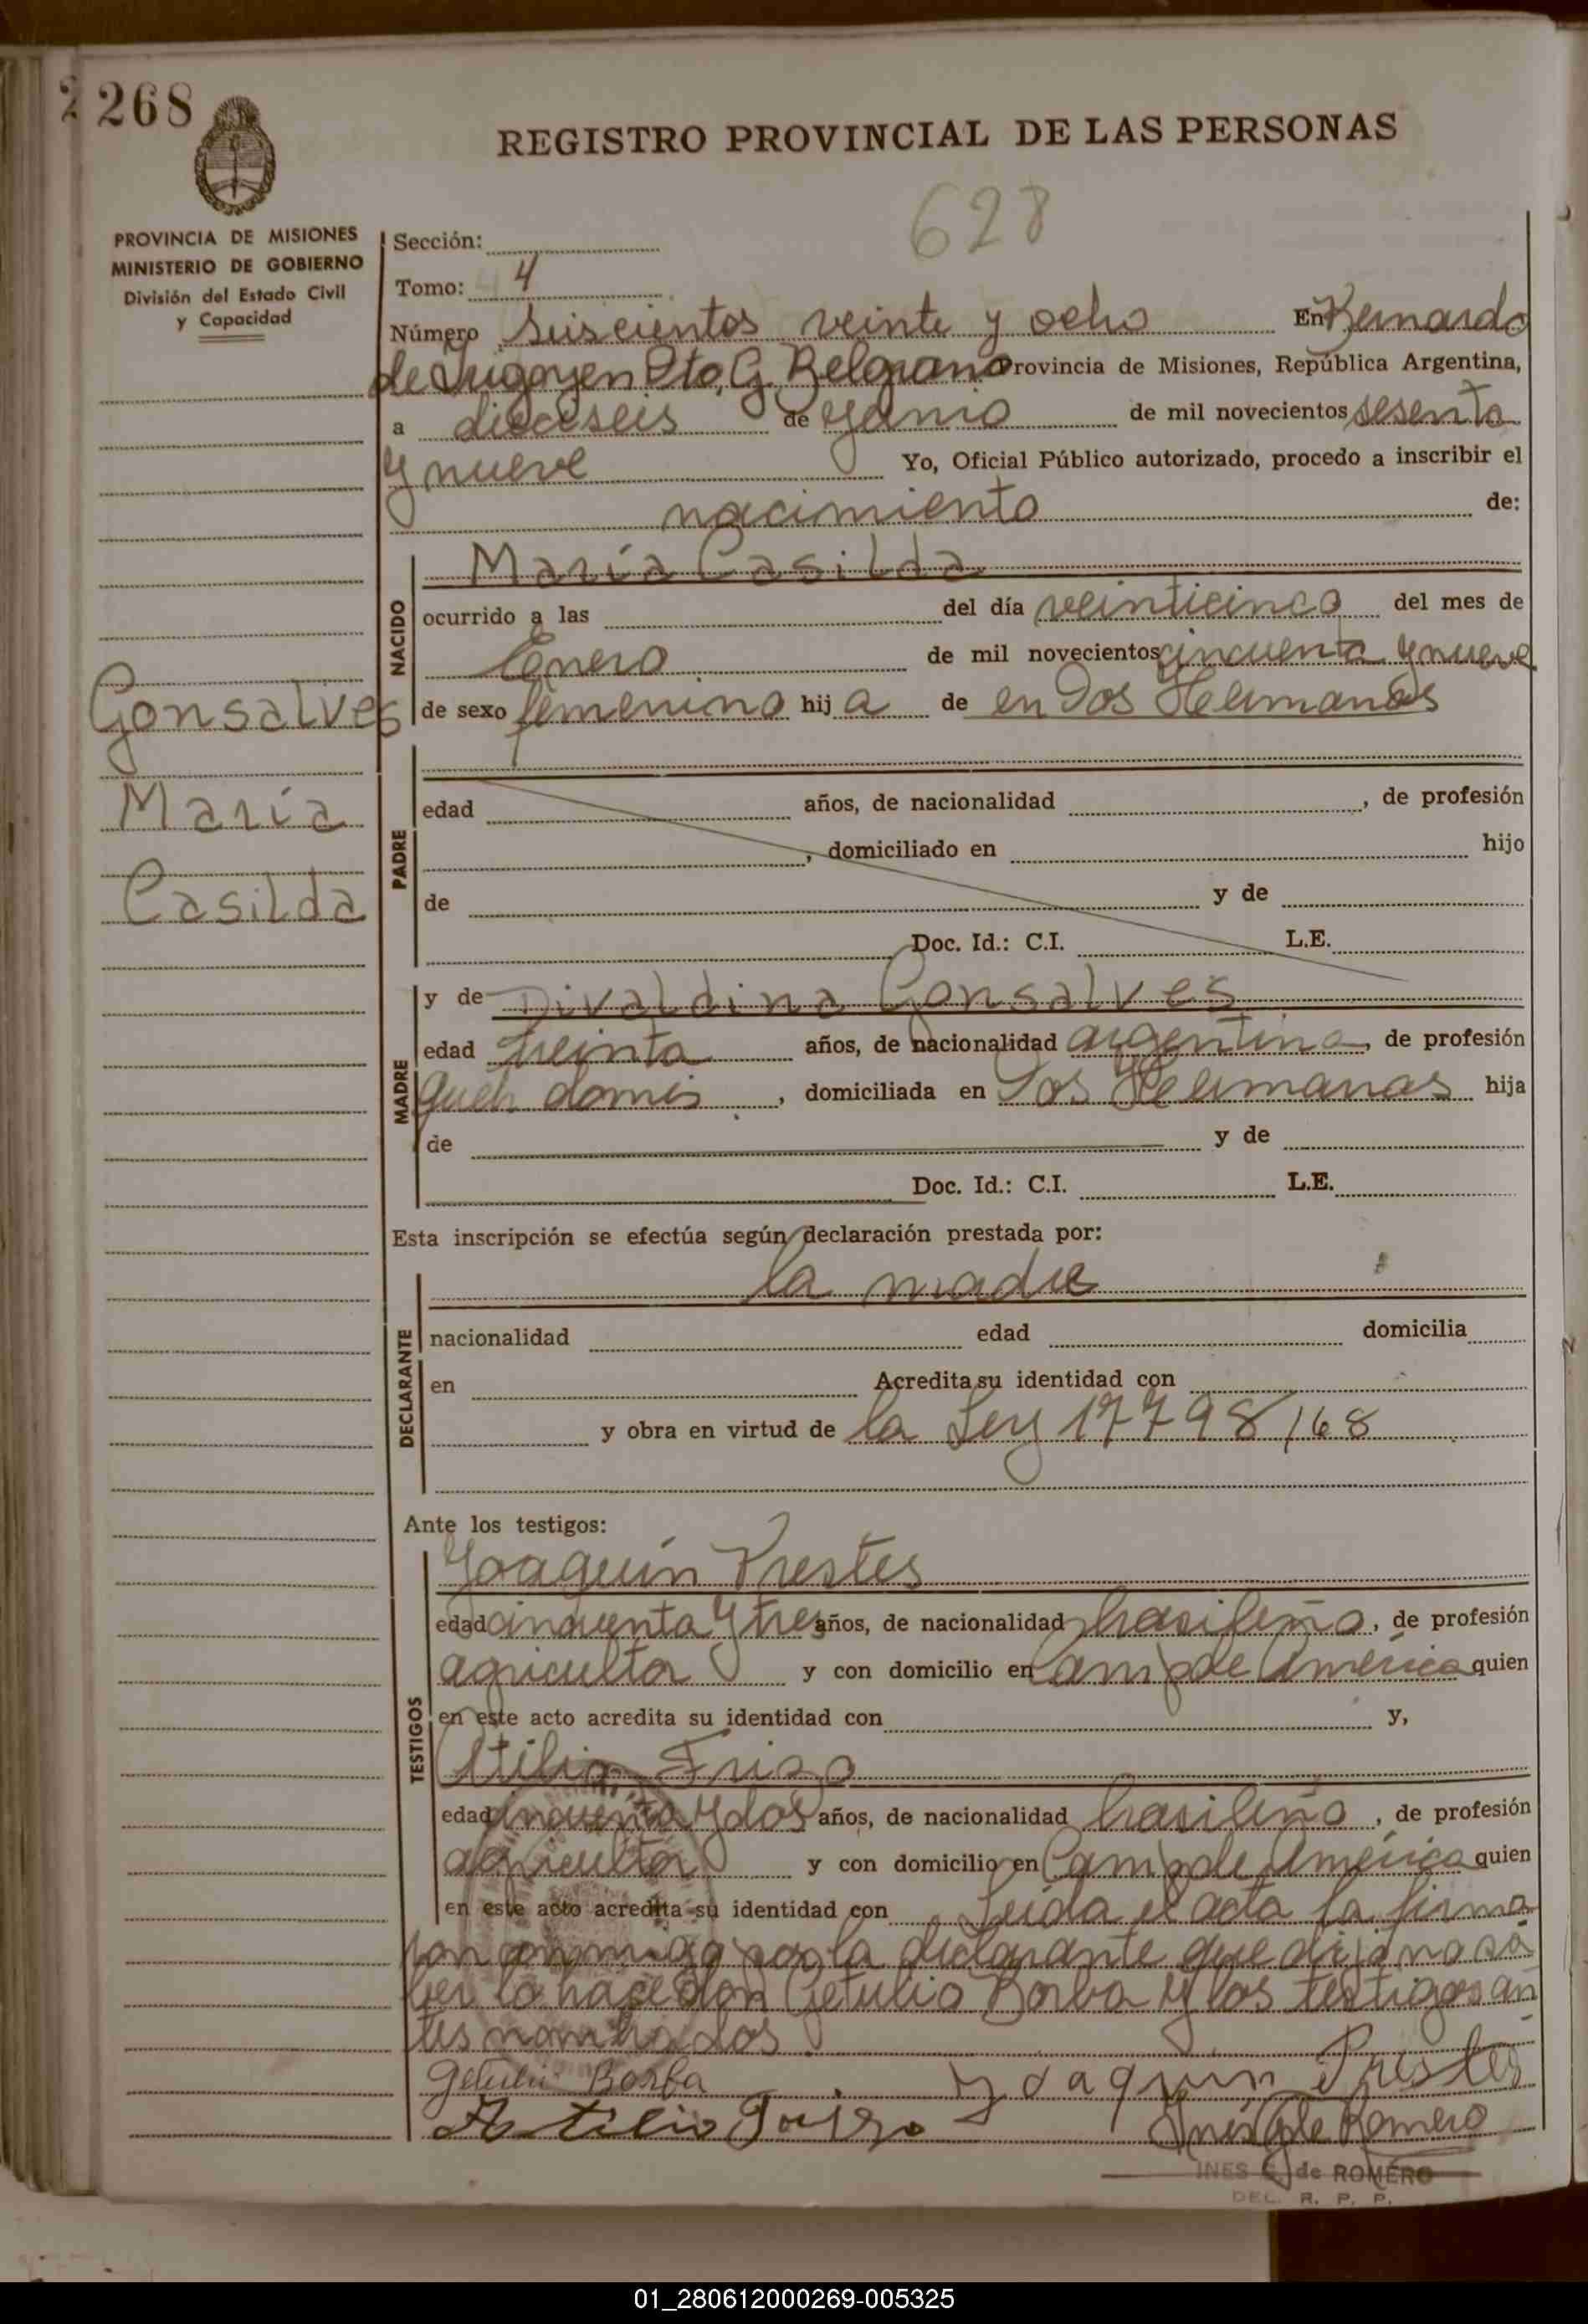 268
REGISTRO PROVINCIAL DE LAS PERSONAS
628
PROVINCIA DE MISIONES
MINISTERIO DE GOBIERNO
División del Estado Civil
y Capacidad
Gonsalves
María
Casilda
Sección:
Tomo: 4
Número Seiscientos veinte y ocho En Bernardo
de Irigoyen Dto, G. Belgrano Provincia de Misiones, República Argentina,
a dieciseis de Junio de mil novecientos sesenta
y nueve Yo, Oficial Público autorizado, procedo a inscribir el
nacimiento de:
NACIDO
María Casilda
ocurrido a las del día veinticinco del mes de
Enero de mil novecientos cincuenta y nueve
de sexo femenino hij a de en Dos Hermanas
PADRE
edad años, de nacionalidad , de profesión
, domiciliado en hijo
de y de
Doc. Id.: C.I. L.E.
MADRE
y de Divaldina Gonsalves
edad treinta años, de nacionalidad argentina, de profesión
queh domés , domiciliada en Dos Hermanas hija
de y de
Doc. Id.: C.I. L.E.
Esta inscripción se efectúa según declaración prestada por:
DECLARANTE
la madre
nacionalidad edad domicilia
en Acredita su identidad con
y obra en virtud de la Ley 17798/68
Ante los testigos:
TESTIGOS
Joaquín Prestes
edad cincuenta y tres años, de nacionalidad brasileño, de profesión
agricultor y con domicilio en Camp de América quien
en este acto acredita su identidad con y,
Atilio Friso
edad cincuenta y dos años, de nacionalidad brasileño, de profesión
agricultor y con domicilio en Camp de América quien
en este acto acredita su identidad con Leída el acta la firma
con conmigo por la declarante que dijo no sa
ber lo hace don Getulio Borba y los testigos an
tes nombrados
Getulio Borba Joaquin Prestes
Atilio Friso Inés G de Romero
INES G de ROMERO
DEL. R. P. P.
01_280612000269-005325